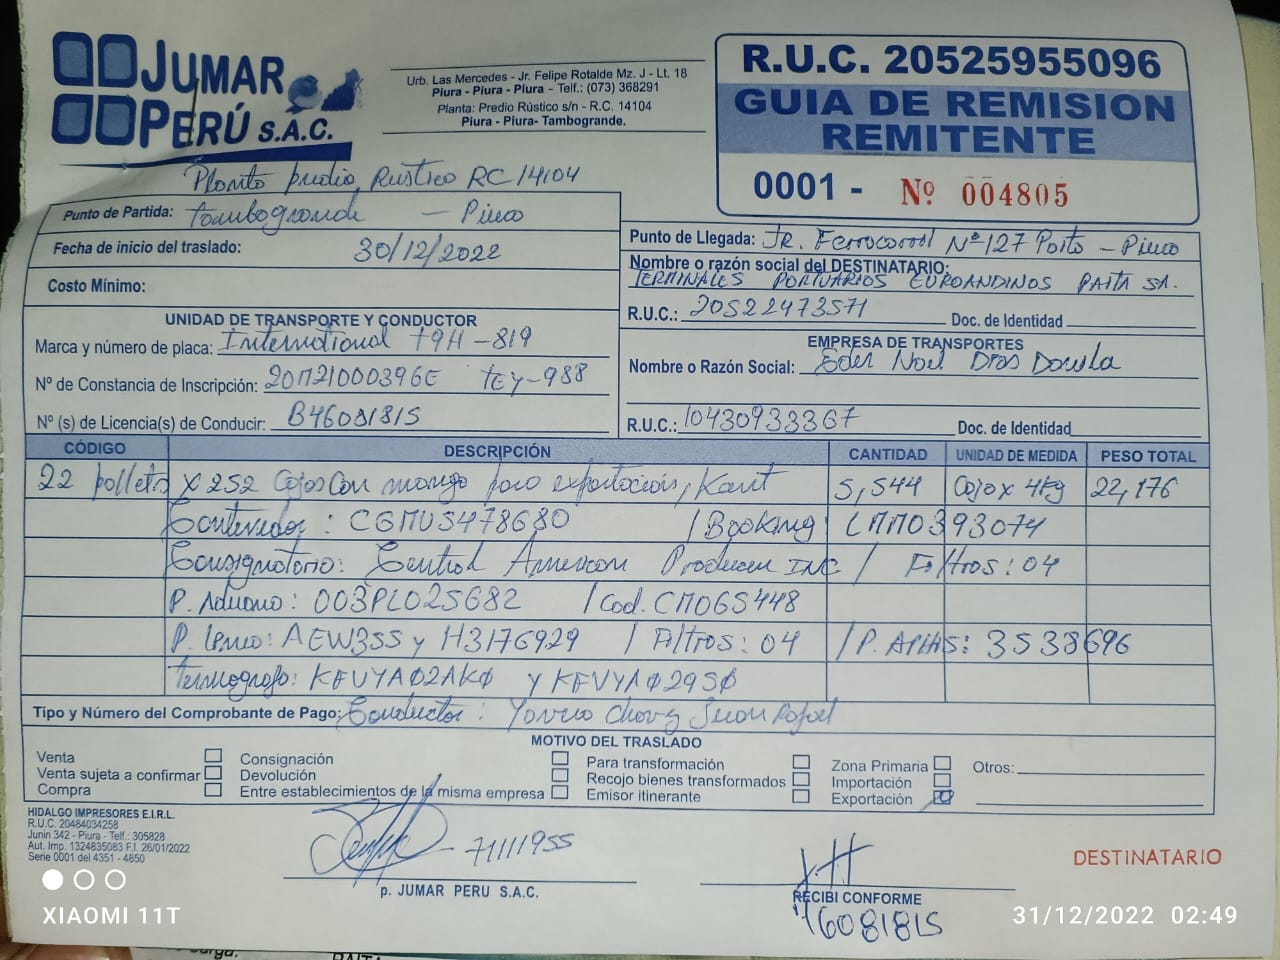 JUMAR
PERÚ S.A.C.
Urb. Las Mercedes - Jr. Felipe Rotalde Mz. J - Lt. 18
Piura - Piura - Piura - Telf.: (073) 368291
Planta: Predio Rústico s/n - R.C. 14104
Piura - Piura- Tambogrande.
R.U.C. 20525955096
GUIA DE REMISION
REMITENTE
0001 - Nº 004805
Planta predio Rustico RC 14104
Punto de Partida: Tambogrande - Piura
Fecha de inicio del traslado: 30/12/2022
Costo Mínimo:
Punto de Llegada: JR. Ferrocarril Nº 127 Paita - Piura
Nombre o razón social del DESTINATARIO:
TERMINALES PORTUARIOS EUROANDINOS PAITA SA.
R.U.C.: 20522473571 Doc. de Identidad
UNIDAD DE TRANSPORTE Y CONDUCTOR
Marca y número de placa: International T9H-819
Nº de Constancia de Inscripción: 20M21000396E TEY-988
Nº (s) de Licencia(s) de Conducir: B46081815
EMPRESA DE TRANSPORTES
Nombre o Razón Social: Eder Noel
R.U.C.: 10430933367 Doc. de Identidad
CÓDIGO DESCRIPCIÓN CANTIDAD UNIDAD DE MEDIDA PESO TOTAL
22 pallets x 252 Cajas con mango para exportación, Kent 5,544 Caja x 4kg 22,176
Contenedor : CGMU5478680 / Booking LMM0393074
Consignatario: Central American Produce INC / Filtros: 04
P. Aduana: 003PL025682 / Cod. CM065448
P. Linea: AEW355 y H3176929 / Filtros: 04 / P. APHIS: 3538696
Termografo: KFVYA02AK0 y KFVYA029S0
Tipo y Número del Comprobante de Pago: Conductor : Juan Rafael
MOTIVO DEL TRASLADO
Venta
Venta sujeta a confirmar
Compra
Consignación
Devolución
Entre establecimientos de la misma empresa
Para transformación
Recojo bienes transformados
Emisor itinerante
Zona Primaria
Importación
Exportación
Otros:
HIDALGO IMPRESORES E.I.R.L.
R.U.C. 20484034258
Junin 342 - Piura - Telf.: 305828
Aut. Imp. 1324835083 F.I. 26/01/2022
Serie 0001 del 4351 - 4850
71111955
p. JUMAR PERU S.A.C.
RECIBI CONFORME
46081815
DESTINATARIO
XIAOMI 11T
31/12/2022 02:49